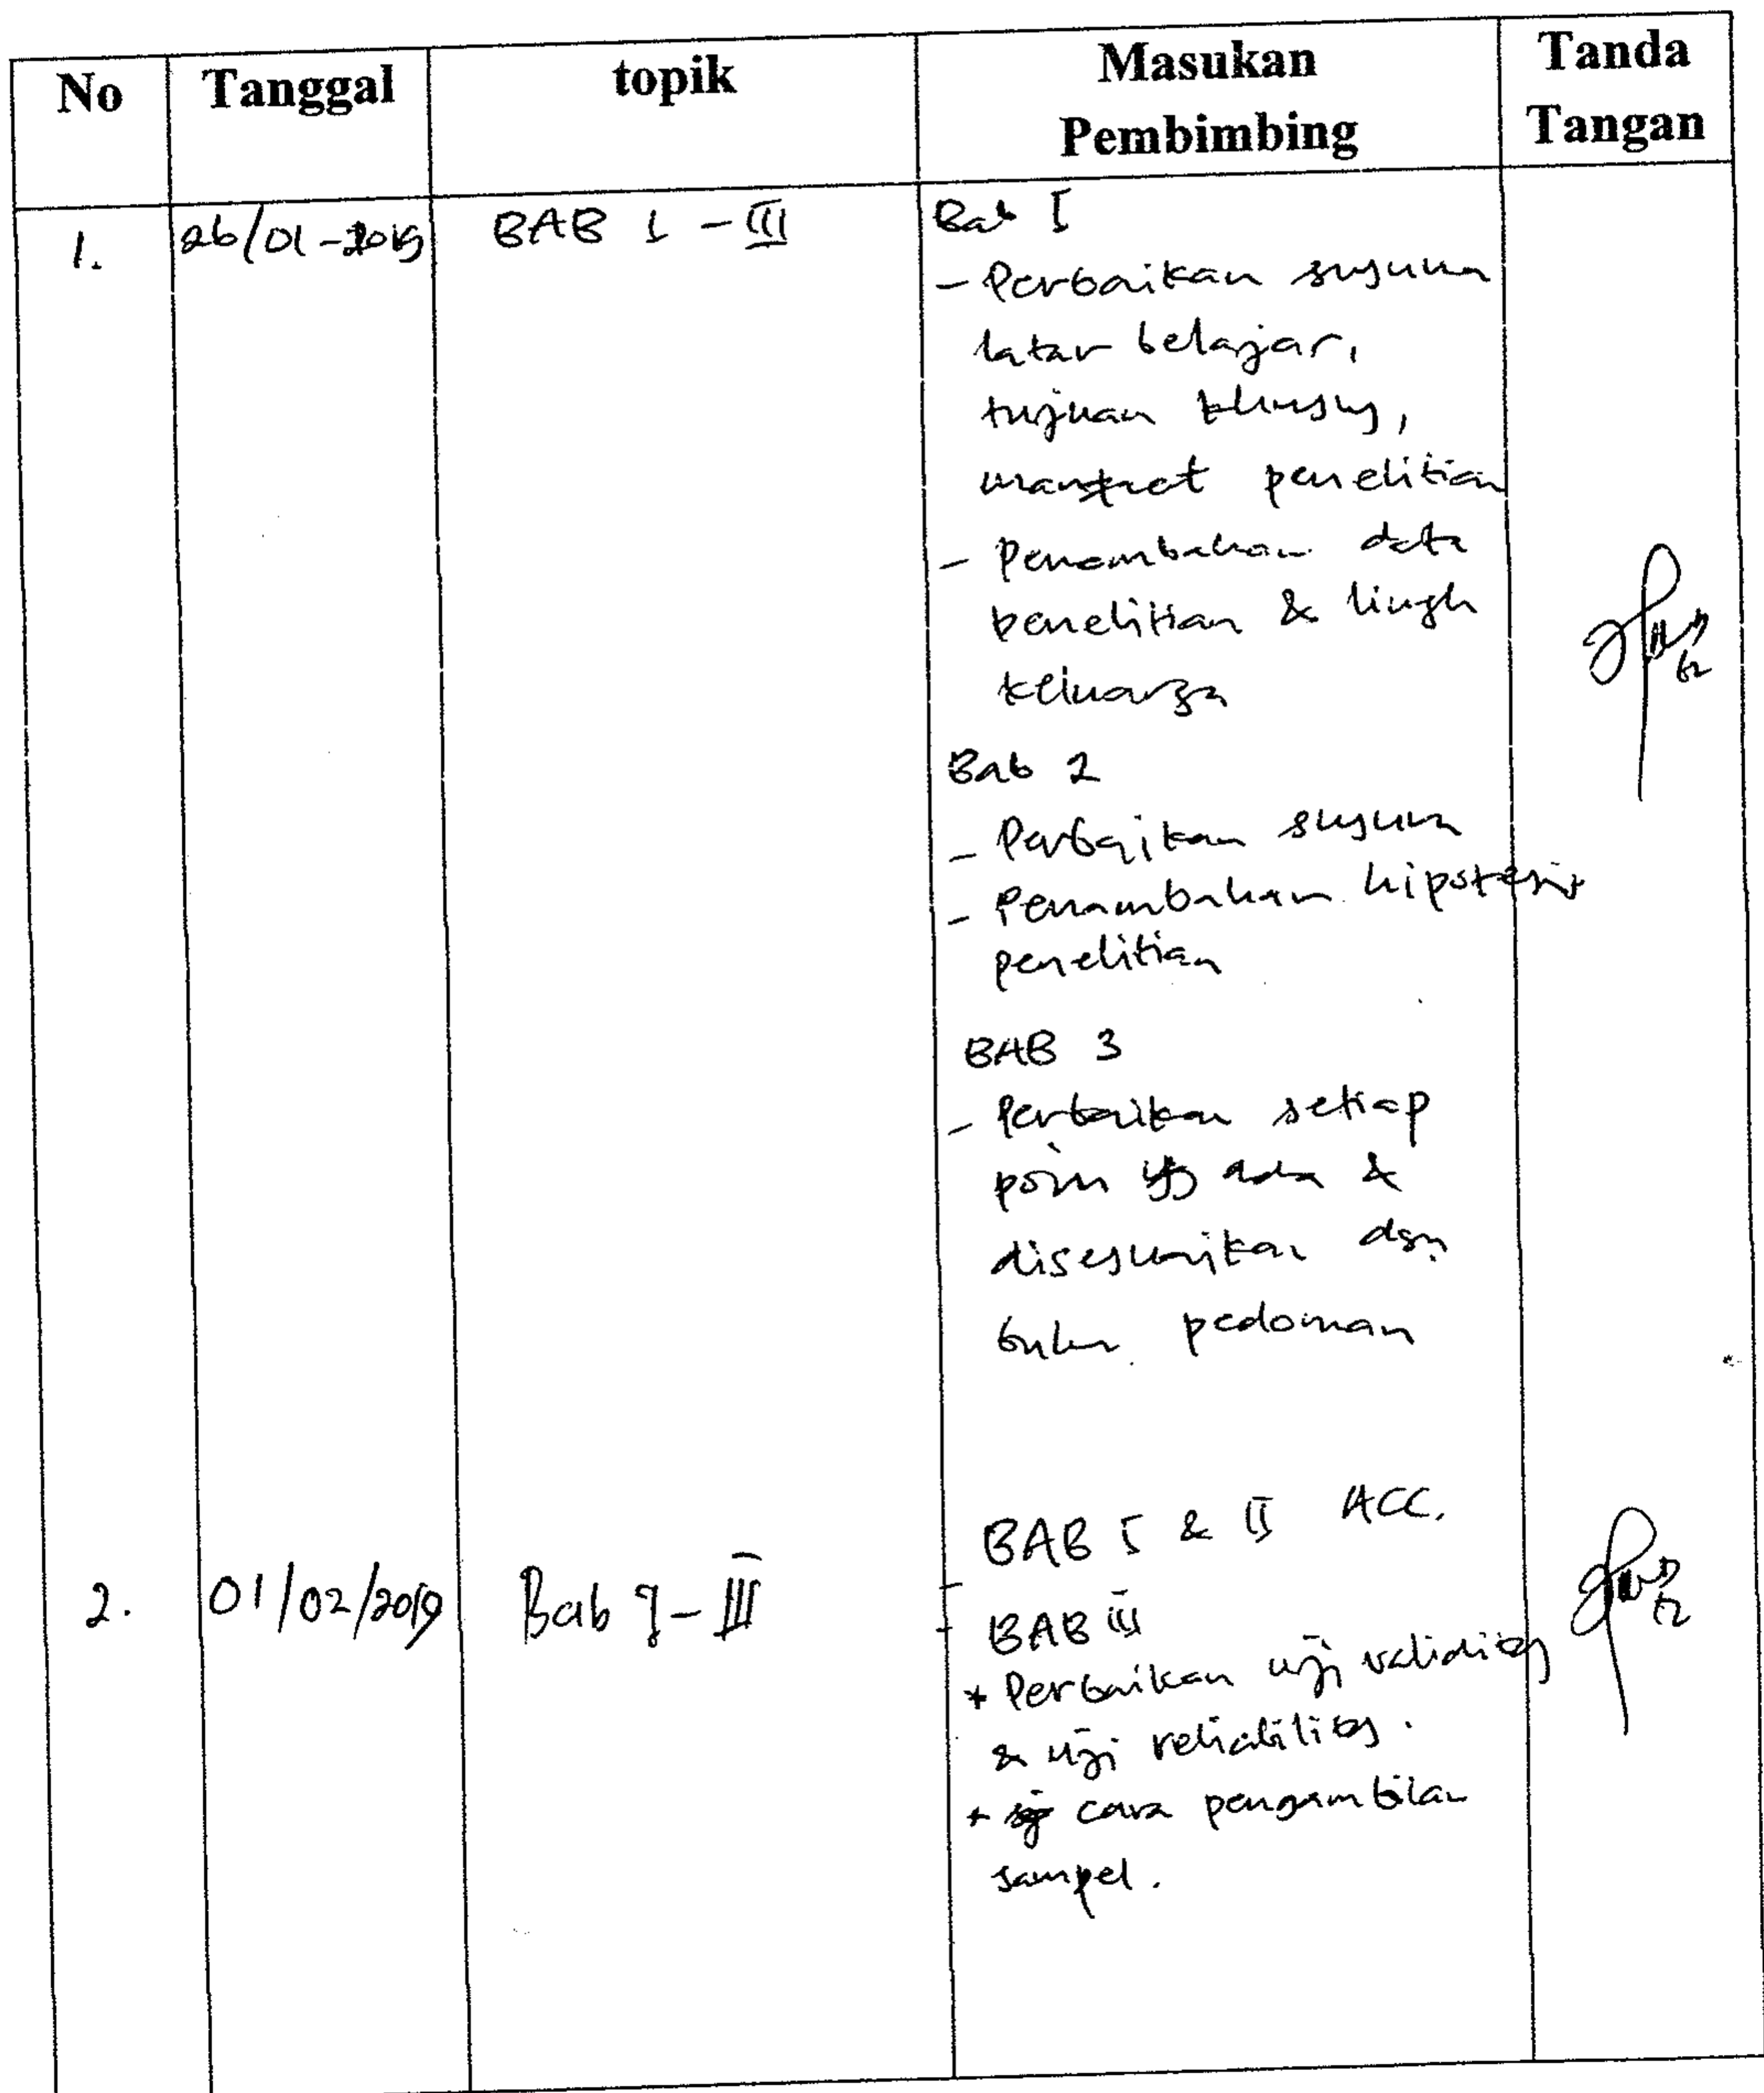 No Tanggal topik Masukan Pembimbing Tanda Tangan
1. 26/01-2019 BAB 1 - III Bab I
- Perbaikan susunan
latar belajar,
tujuan khusus,
manfaat penelitian
- Penambahan data
penelitian & lingk
keluarga
Bab 2
- Perbaikan susunan
- Penambahan hipotesis
penelitian
BAB 3
- Perbaikan setiap
poin yg ada &
disesuaikan dgn
buku pedoman
2. 01/02/2019 Bab I - III - BAB I & II ACC.
- BAB III
* Perbaikan uji validitas
& uji reliabilitas.
* cara pengambilan
sampel.